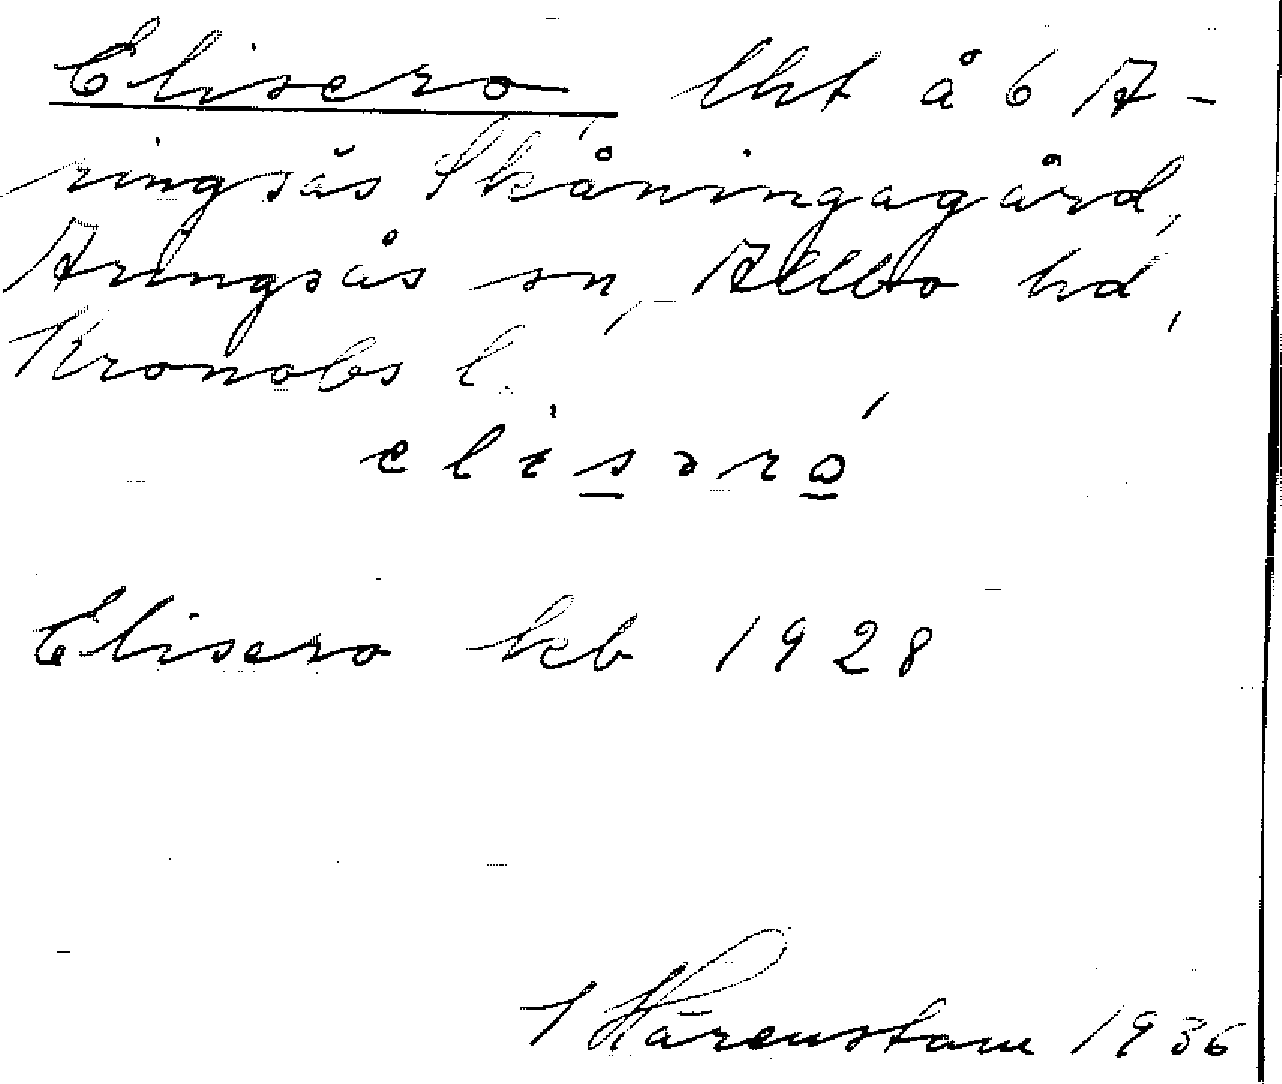 Elisero, lht å 6 A-
ringsås Skåningagård,
Aringsås sn, Allbo hd,
Kronobs l.
elisəró
Elisero kb 1928
I Härenstam 1936